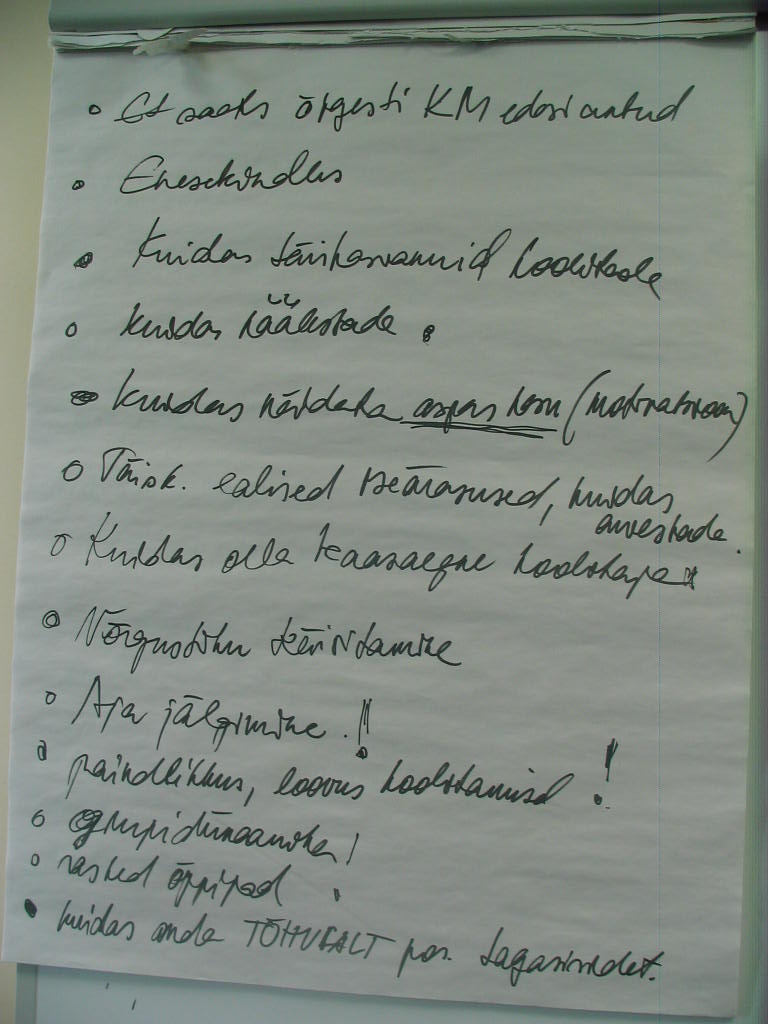 Et saaks õigesti KM edasi antud
Enesekindlus
Kuidas täiskasvanuid koolitada
kuidas rääkida
kuidas näidata asjas isu (motivatsioon)
Täisk. ealised iseärasused, kuidas
arvestada.
Kuidas olla kaasaegne koolitaja
Võrgustiku käivitamine
Aja jälgimine!!
paindlikkus, loovus koolitamisel !
grupidünaamika!
rasked õppijad
kuidas anda TÕHUSALT pos. tagasisidet.